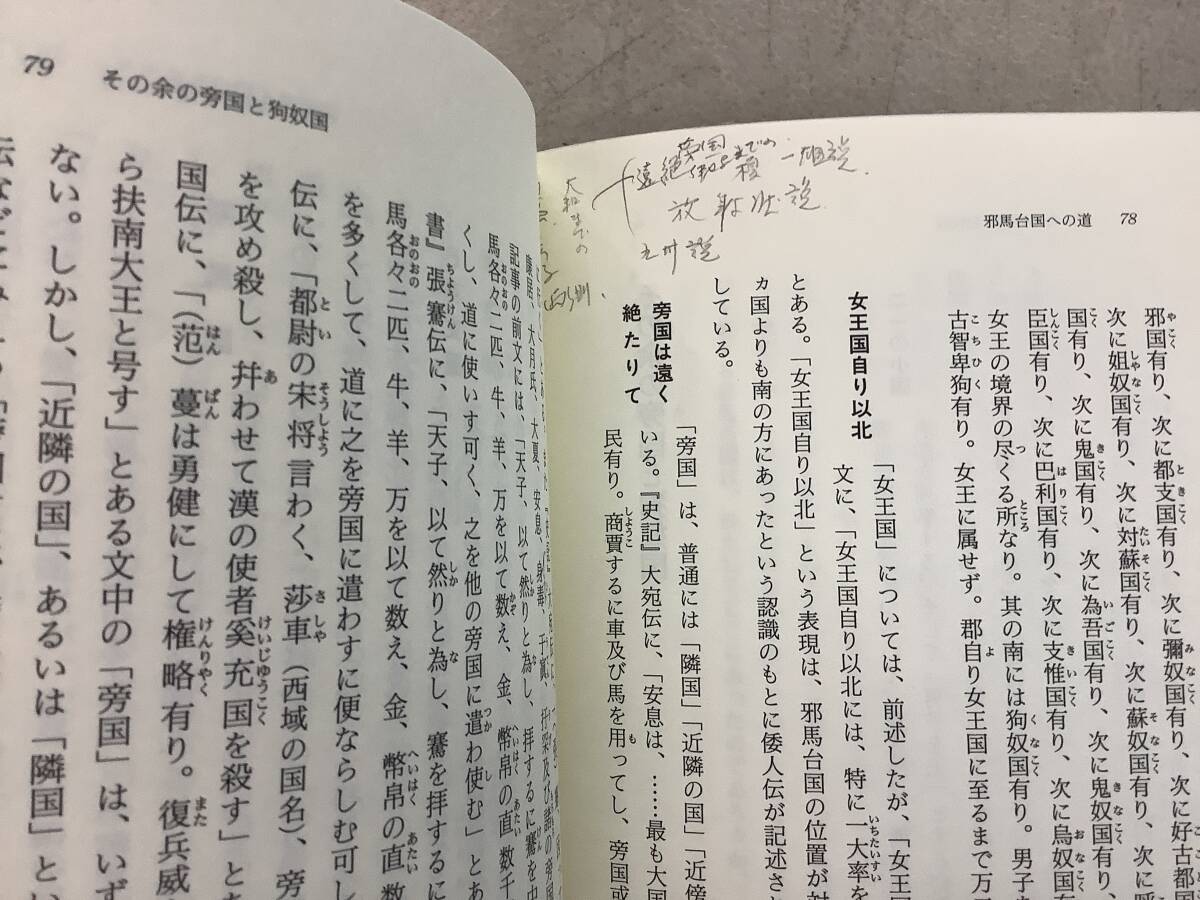 邪馬台国への道　78
邪国有り、次に都支国有り、次に彌奴国有り、次に好古都国
次に姐奴国有り、次に対蘇国有り、次に蘇奴国有り、次に呼
国有り、次に鬼国有り、次に為吾国有り、次に鬼奴国有り、
臣国有り、次に巴利国有り、次に支惟国有り、次に烏奴国有
女王の境界の尽くる所なり。其の南には狗奴国有り。男子
古智卑狗有り。女王に属せず。郡自り女王国に至るまで万
女王国自り以北
「女王国」については、前述したが、「女王
文に、「女王国自り以北には、特に一大率を
とある。「女王国自り以北」という表現は、邪馬台国の位置が対
ヵ国よりも南の方にあったという認識のもとに倭人伝が記述さ
している。
旁国は遠く
絶たりて
「旁国」は、普通には「隣国」「近隣の国」「近傍
いる。『史記』大宛伝に、「安息は、……最も大国
民有り。商賈するに車及び馬を用ってし、旁国或
遠絶
旁国
説
放射状説
九州説
79　その余の旁国と狗奴国
康居、大月氏、大夏、安息、身毒、于寘、
記事の前文には、「天子、以て然りと為し、拝するに騫を中
馬各々二匹、牛、羊、万を以て数え、金、幣帛の直数千
くし、道に使いす可く、之を他の旁国に遣わ使む」とあ
書』張騫伝に、「天子、以て然りと為し、騫を拝するに
馬各々二匹、牛、羊、万を以て数え、金、幣帛の直数
を多くして、道に之を旁国に遣わすに便ならしむ可し
伝に、「都尉の宋将言わく、莎車（西域の国名）、旁
を攻め殺し、幷わせて漢の使者奚充国を殺す」とあ
国伝に、「（范）蔓は勇健にして権略有り。復兵威
ら扶南大王と号す」とある文中の「旁国」は、いず
ない。しかし、「近隣の国」、あるいは「隣国」とい